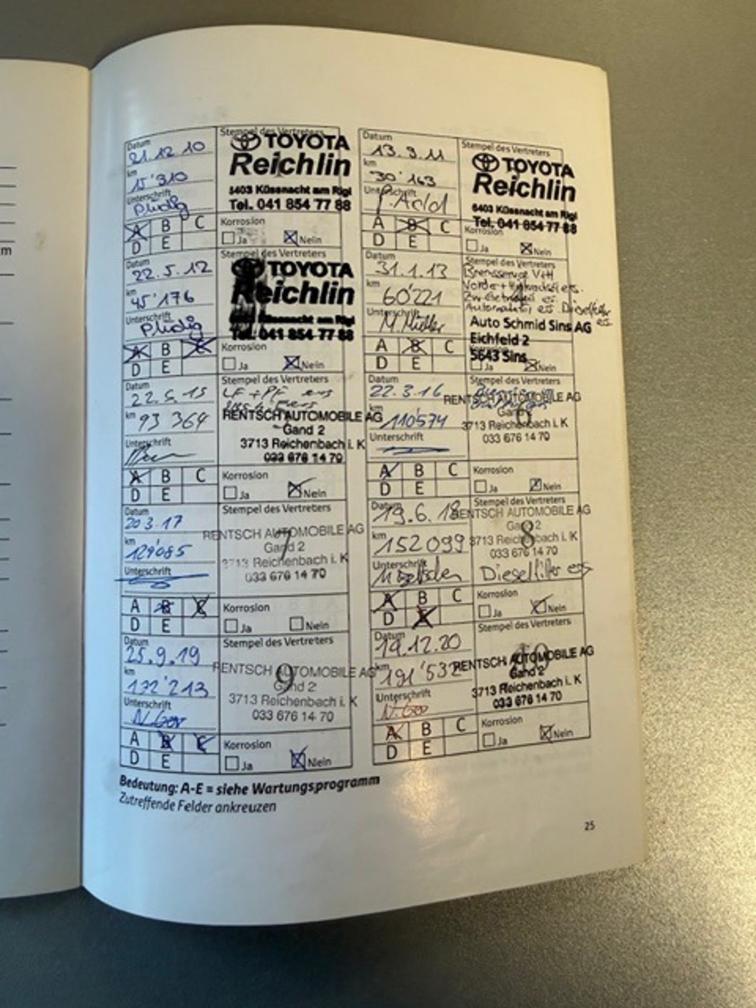 Datum
21.12.10
km
15'310
Unterschrift
Stempel des Vertreters
TOYOTA
Reichlin
6403 Küssnacht am Rigi
Tel. 041 854 77 88
A B C
D E
Korrosion
Ja Nein
Datum
13.3.11
km
30'163
Unterschrift
Stempel des Vertreters
TOYOTA
Reichlin
6403 Küssnacht am Rigi
Tel. 041 854 77 88
A B C
D E
Korrosion
Ja Nein
Datum
22.5.12
km
45'176
Unterschrift
Stempel des Vertreters
TOYOTA
Reichlin
Tel. 041 854 77 88
A B C
D E
Korrosion
Ja Nein
Datum
31.1.13
km
60'221
Unterschrift
M. Müller
Stempel des Vertreters
Auto Schmid Sins AG
Eichfeld 2
5643 Sins
A B C
D E
Korrosion
Ja Nein
Datum
22.5.15
km 93 364
Unterschrift
Stempel des Vertreters
LF + PF ers
RENTSCH AUTOMOBILE AG
Gand 2
3713 Reichenbach i. K
033 676 14 70
A B C
D E
Korrosion
Ja Nein
Datum
22.3.16
km
110'574
Unterschrift
Stempel des Vertreters
RENTSCH AUTOMOBILE AG
Gand 2
6
3713 Reichenbach i. K
033 676 14 70
A B C
D E
Korrosion
Ja Nein
Datum
20.3.17
km
129'085
Unterschrift
Stempel des Vertreters
RENTSCH AUTOMOBILE AG
7
Gand 2
3713 Reichenbach i. K
033 676 14 70
A B C
D E
Korrosion
Ja Nein
Datum
19.6.18
km
152099
Unterschrift
Stempel des Vertreters
RENTSCH AUTOMOBILE AG
Gand 2
8
3713 Reichenbach i. K
033 676 14 70
Dieselfilter ers
A B C
D E
Korrosion
Ja Nein
Datum
25.9.19
km
132'213
Unterschrift
Stempel des Vertreters
RENTSCH AUTOMOBILE AG
9
Gand 2
3713 Reichenbach i. K
033 676 14 70
A B C
D E
Korrosion
Ja Nein
Datum
19.12.20
km
191'532
Unterschrift
Stempel des Vertreters
RENTSCH AUTOMOBILE AG
10
Gand 2
3713 Reichenbach i. K
033 676 14 70
A B C
D E
Korrosion
Ja Nein
Bedeutung: A-E = siehe Wartungsprogramm
Zutreffende Felder ankreuzen
25
m